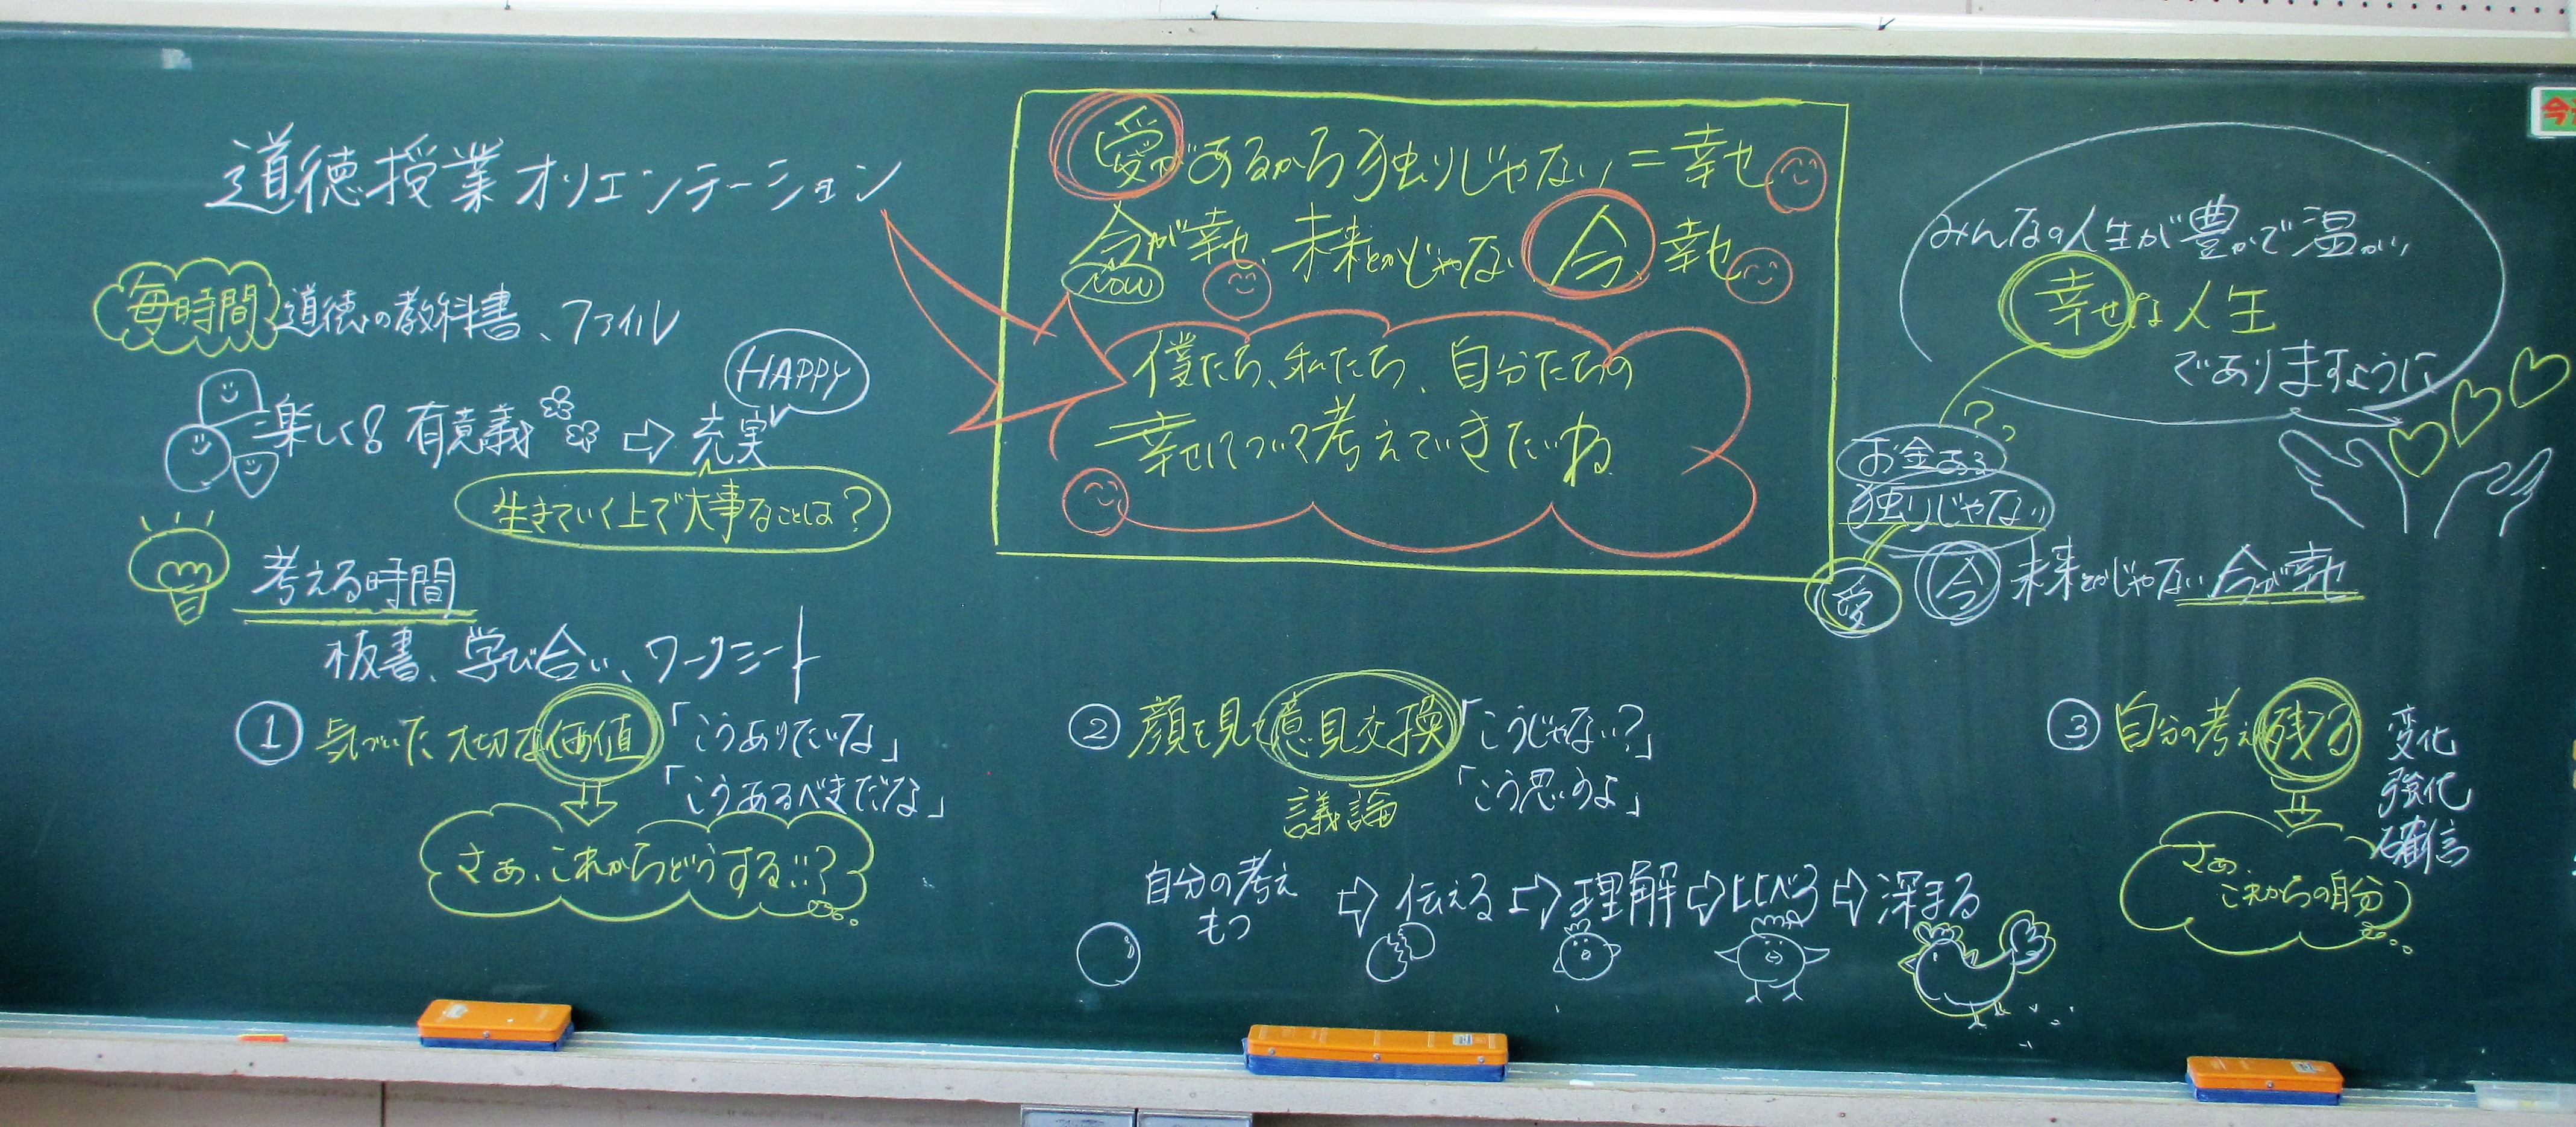 道徳授業オリエンテーション
毎時間 道徳の教科書、ファイル
楽しく! 有意義 ⇨ 充実
HAPPY
生きていく上で大事なことは?
考える時間
板書、学び合い、ワークシート
① 気づいた大切な価値 「こうありたいな」
「こうあるべきだな」
さぁ、これからどうする!!?
愛があるから独りじゃない=幸せ
今が幸せ、未来とかじゃない 今 幸せ
NOW
僕たち、私たち、自分たちの
幸せについて考えていきたいね
② 顔を見て意見交換 「こうじゃない?」
議論 「こう思うよ」
自分の考え
もつ
⇨ 伝える ⇨ 理解 ⇨ 比べる ⇨ 深まる
みんなの人生が豊かで温かい
幸せな人生
でありますように
?
お金ある
独りじゃない
愛 今 未来とかじゃない 今が幸せ
③ 自分の考え残る 変化
強化
確信
さぁ、
これからの自分